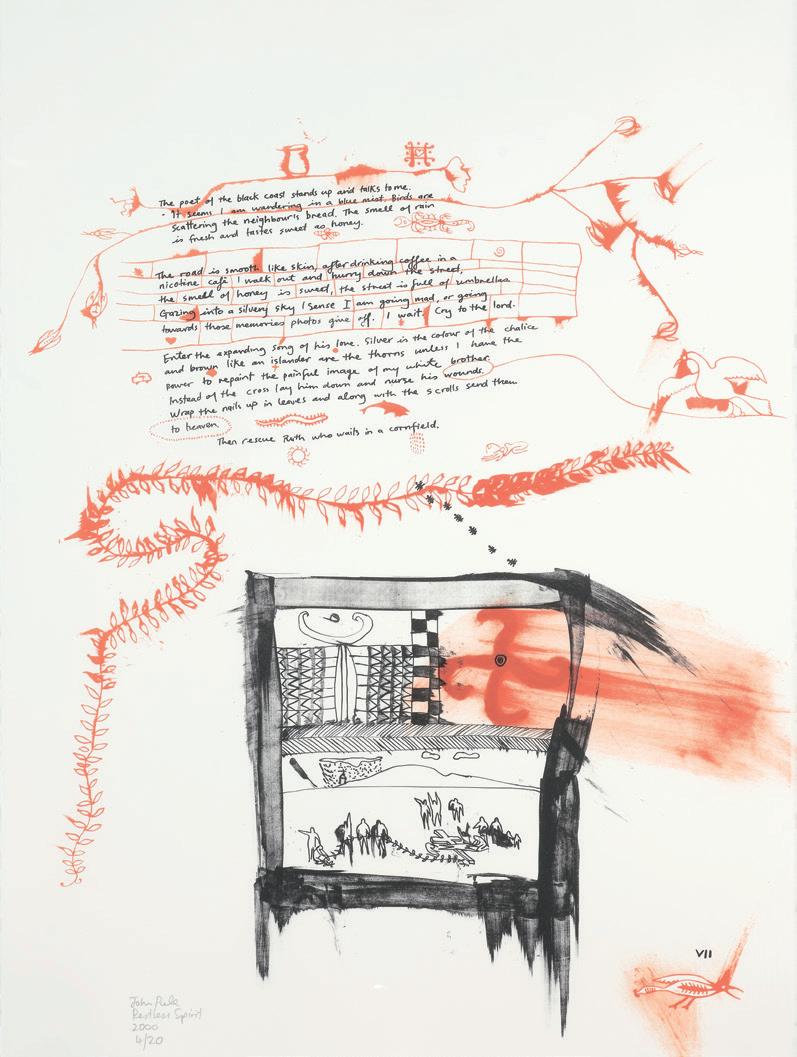 The poet of the black coast stands up and talks to me.
- It seems I am wandering in a blue mist. Birds are
scattering the neighbour's bread. The smell of rain
is fresh and tastes sweet as honey.
The road is smooth like skin, after drinking coffee in a
nicotine café I walk out and hurry down the street,
the smell of honey is sweet, the street is full of umbrellas
Gazing into a silvery sky I sense I am going mad, or going
towards those memories photos give off. I wait. Cry to the lord.
Enter the expanding song of his love. Silver is the colour of the chalice
and brown like an islander are the thorns unless I have the
power to repaint the painful image of my white brother.
Instead of the cross lay him down and nurse his wounds.
Wrap the nails up in leaves and along with the scrolls send them
to heaven.
Then rescue Ruth who waits in a cornfield.
VII
John Pule
Restless Spirit
2000
4/20